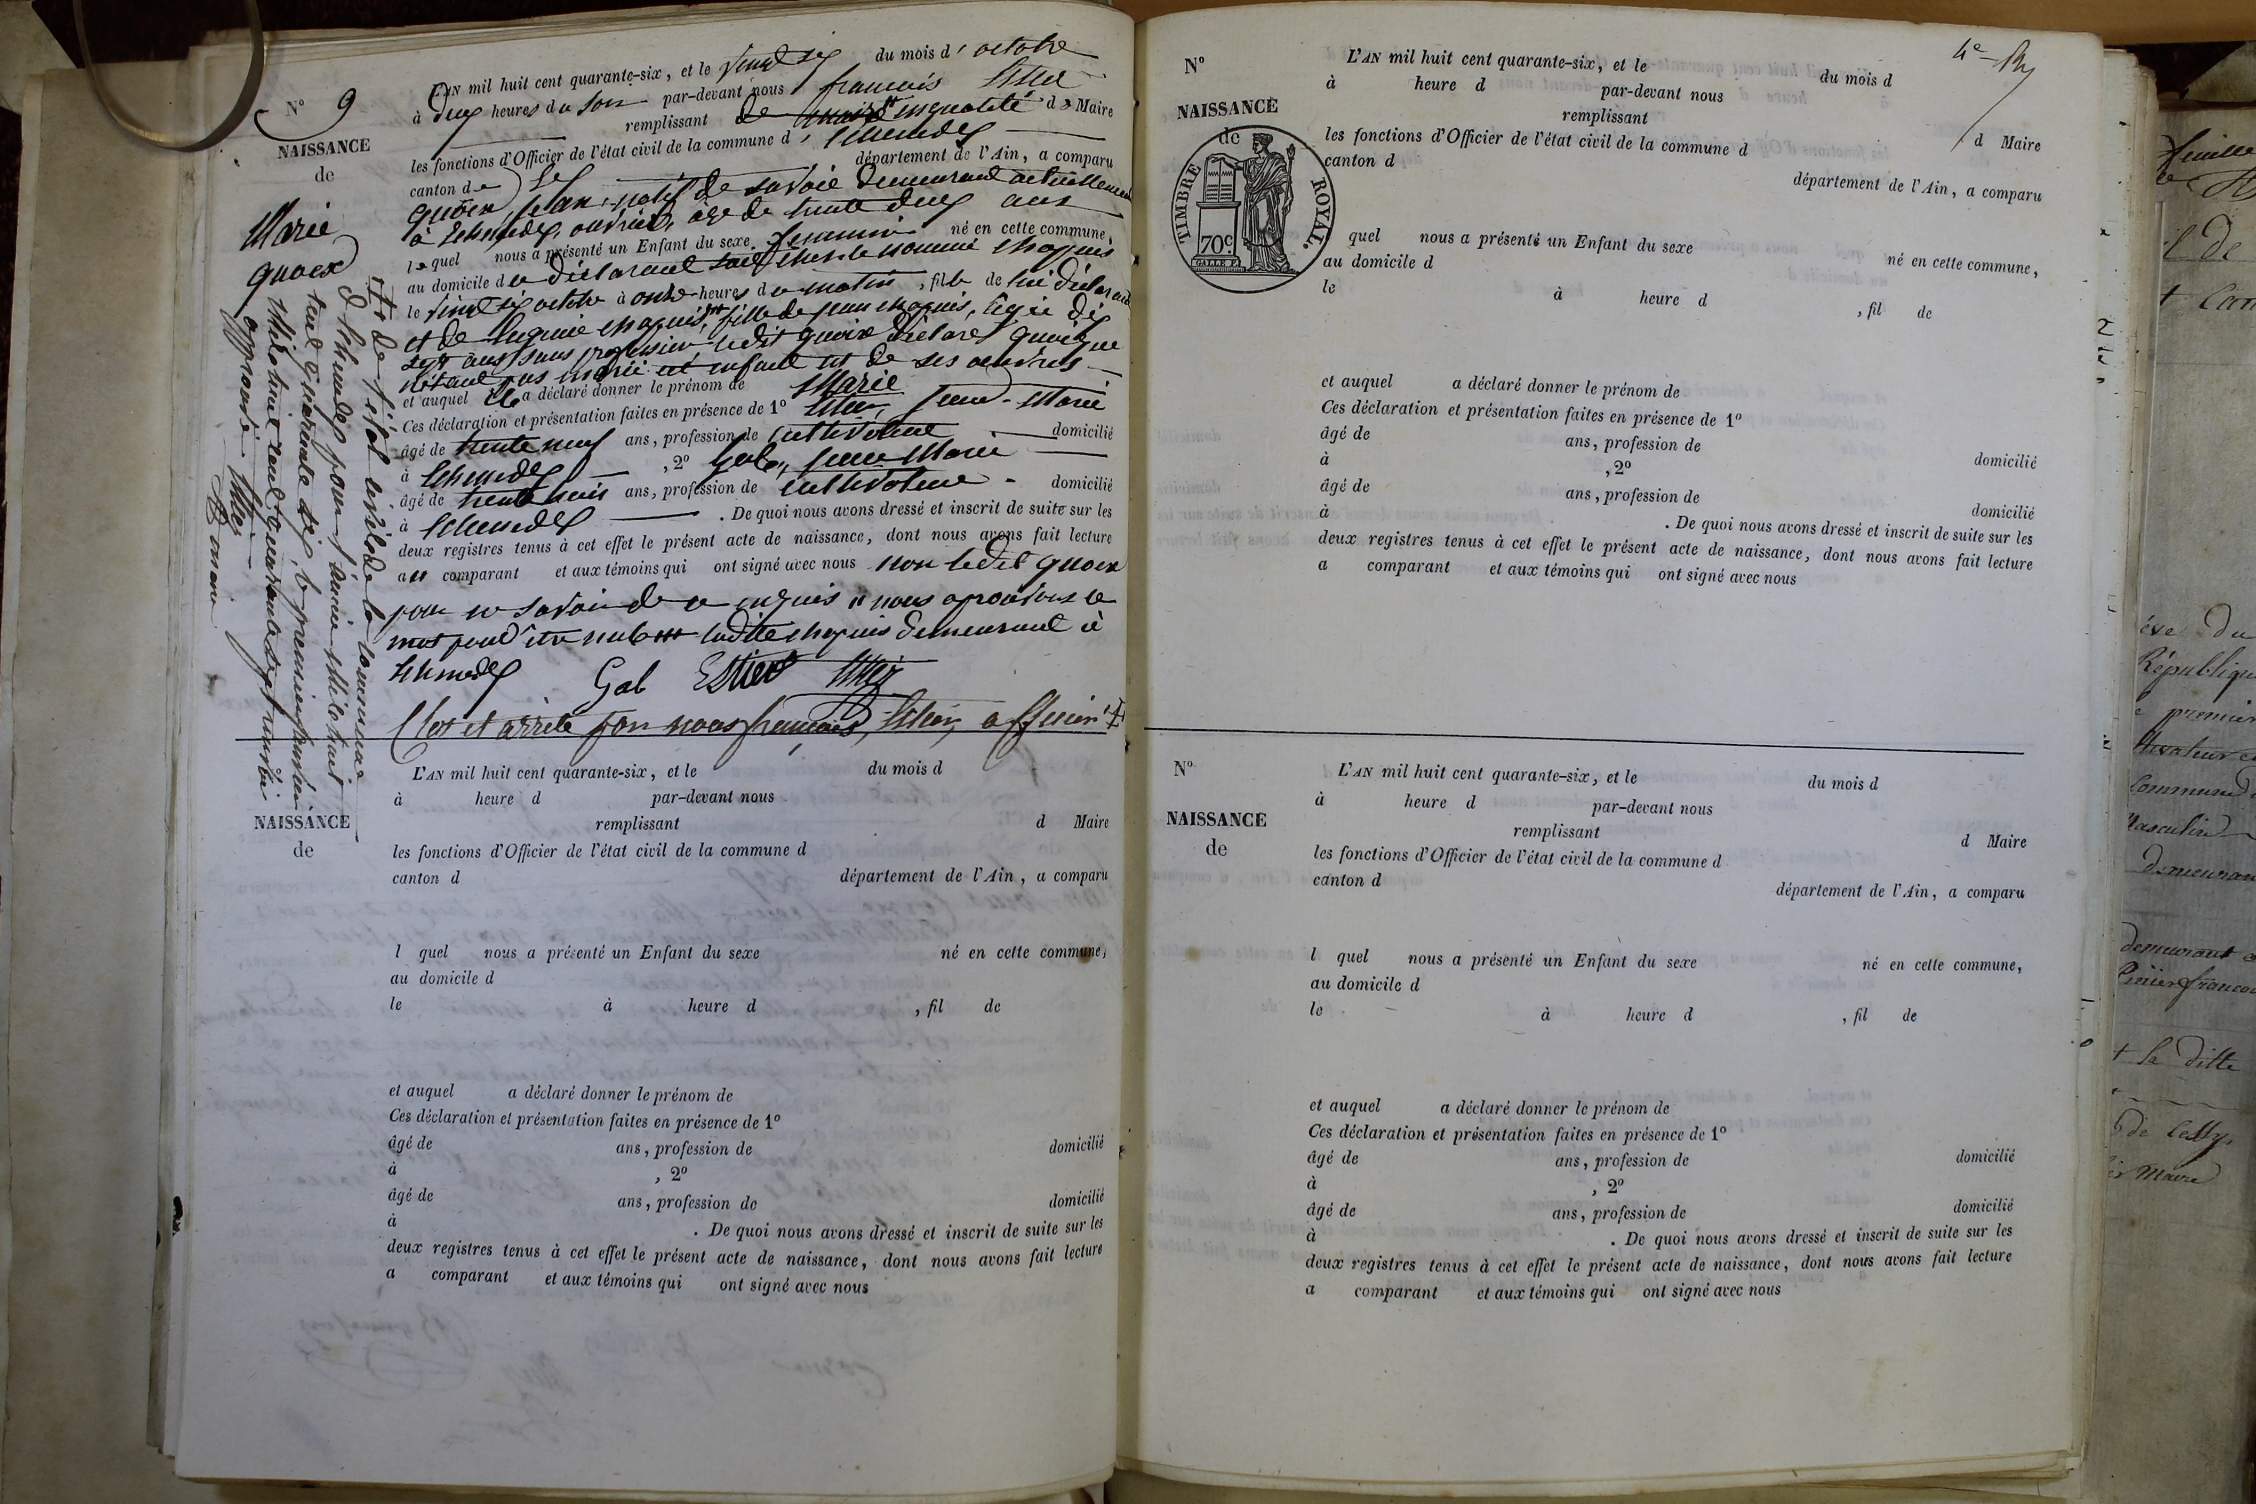 N° 9
NAISSANCE
de
Marie
quoex
L'AN mil huit cent quarante-six, et le vingt six du mois d'octobre
à deux heures du soir par-devant nous francois
remplissant de en qualité de Maire
les fonctions d'Officier de l'état civil de la commune d'
canton de département de l'Ain, a comparu
quoex, jean, natif de savoie demeurant actuellement
à ouvrier, âgé de trente deux ans
lequel nous a présenté un Enfant du sexe feminin né en cette commune,
au domicile du déclarant chez le nommé chapuis
le vingt six octobre à onze heures du matin, fille de lui déclarant
et de chapuis, fille de jean chapuis, âgée dix
sept ans sans profession ledit quoix déclare quoique
n'étant pas marié enfant est de ses oeuvres
et auquel il a déclaré donner le prénom de Marie
Ces déclaration et présentation faites en présence de 1° jean-Marie
âgé de trente neuf ans, profession de cultivateur domicilié
à , 2° Gab, jean Marie
âgé de trente ans, profession de cultivateur domicilié
à . De quoi nous avons dressé et inscrit de suite sur les
deux registres tenus à cet effet le présent acte de naissance, dont nous avons fait lecture
au comparant et aux témoins qui ont signé avec nous non ledit quoex
pour ne savoir de ce enquis nous aprouvons le
mot ladite chapuis demeurant à
Gab Estier
Clos et arrêté par nous francois, officier
de l'état civil de la commune
d' pour l'année mil huit
cent quarante six, le premier janvier
mil huit cent quarante sept
approuvé
maire
L'AN mil huit cent quarante-six, et le du mois d
à heure d par-devant nous
remplissant d Maire
NAISSANCE
de
les fonctions d'Officier de l'état civil de la commune d
canton d département de l'Ain, a comparu
l quel nous a présenté un Enfant du sexe né en cette commune,
au domicile d
le à heure d , fil de
et auquel a déclaré donner le prénom de
Ces déclaration et présentation faites en présence de 1°
âgé de ans, profession de domicilié
à , 2°
âgé de ans, profession de domicilié
à . De quoi nous avons dressé et inscrit de suite sur les
deux registres tenus à cet effet le présent acte de naissance, dont nous avons fait lecture
a comparant et aux témoins qui ont signé avec nous
4e
N°
NAISSANCE
de
TIMBRE ROYAL.
70c
L'AN mil huit cent quarante-six, et le du mois d
à heure d par-devant nous
remplissant d Maire
les fonctions d'Officier de l'état civil de la commune d
canton d département de l'Ain, a comparu
quel nous a présenté un Enfant du sexe né en cette commune,
au domicile d
le à heure d , fil de
et auquel a déclaré donner le prénom de
Ces déclaration et présentation faites en présence de 1°
âgé de ans, profession de domicilié
à , 2°
âgé de ans, profession de domicilié
à . De quoi nous avons dressé et inscrit de suite sur les
deux registres tenus à cet effet le présent acte de naissance, dont nous avons fait lecture
a comparant et aux témoins qui ont signé avec nous
N°
NAISSANCE
de
L'AN mil huit cent quarante-six, et le du mois d
à heure d par-devant nous
remplissant d Maire
les fonctions d'Officier de l'état civil de la commune d
canton d département de l'Ain, a comparu
l quel nous a présenté un Enfant du sexe né en cette commune,
au domicile d
le à heure d , fil de
et auquel a déclaré donner le prénom de
Ces déclaration et présentation faites en présence de 1°
âgé de ans, profession de domicilié
à , 2°
âgé de ans, profession de domicilié
à . De quoi nous avons dressé et inscrit de suite sur les
deux registres tenus à cet effet le présent acte de naissance, dont nous avons fait lecture
a comparant et aux témoins qui ont signé avec nous